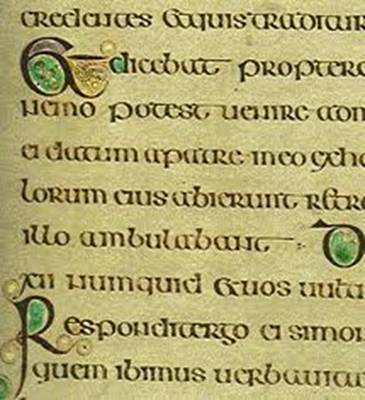 credentes et quis traditur
Et dicebat proptere
nemo potest uenire adm
ei datum a patre meo exho
lorum eius abierunt retro
illo ambulabant D
xii numquid et uos uulti
Respondit ergo ei simo
quem ibimus uerba uita